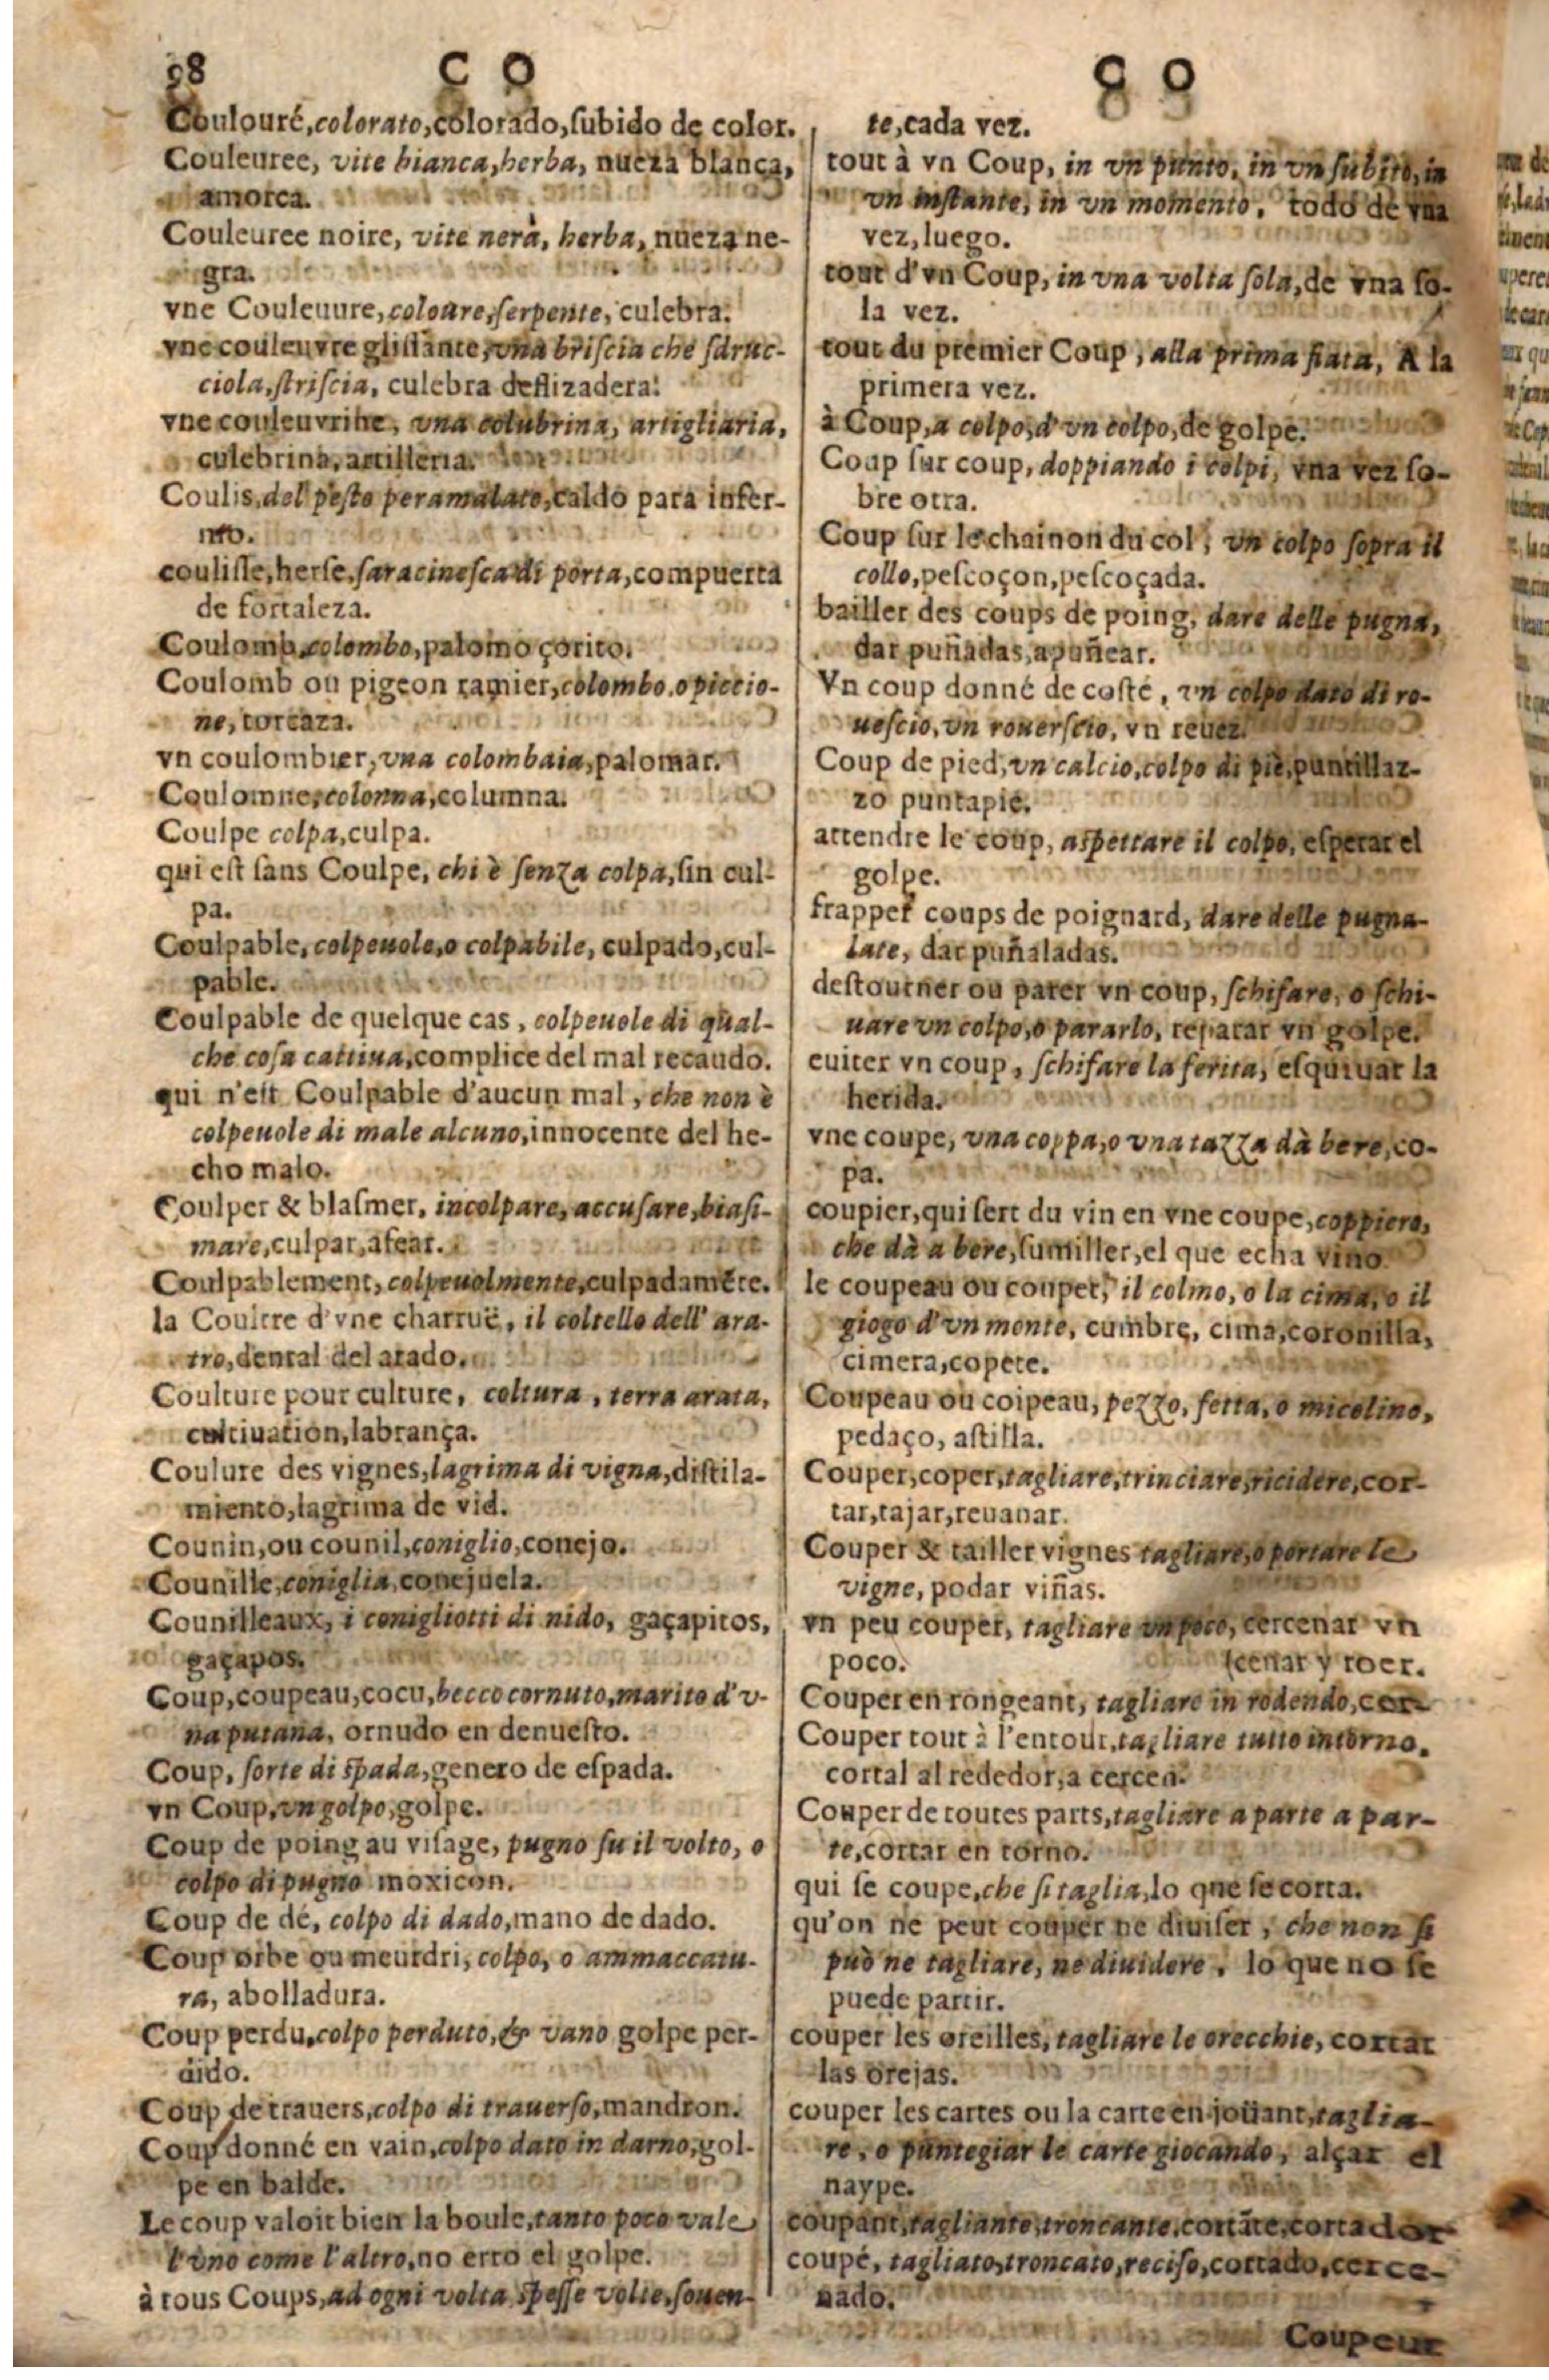 98 C O
Coulouré, colorato, colorado, ſubido de color.
Couleuree, vite bianca, herba, nueza blanca,
amorca.
Couleuree noire, vite nerà, herba, nueza ne-
gra.
vne Couleuure, coloure, ſerpente, culebra.
vne couleuvre gliſſante, vna briſcia che ſdruc-
ciola, ſtriſcia, culebra deſlizadera.
vne couleuvrine, vna colubrina, artigliaria,
culebrina, artilleria.
Coulis, del peſto per amalato, caldo para infer-
mo.
couliſſe, herſe, ſaracineſca di porta, compuerta
de fortaleza.
Coulomb, colombo, palomo çorito.
Coulomb ou pigeon ramier, colombo, o piccio-
ne, torcaza.
vn coulombier, vna colombaia, palomar.
Coulomne, colonna, columna.
Coulpe colpa, culpa.
qui eſt ſans Coulpe, chi è ſenza colpa, ſin cul-
pa.
Coulpable, colpeuole, o colpabile, culpado, cul-
pable.
Coulpable de quelque cas, colpeuole di qual-
che coſa cattiua, complice del mal recaudo.
qui n'eſt Coulpable d'aucun mal, che non è
colpeuole di male alcuno, innocente del he-
cho malo.
Coulper & blaſmer, incolpare, accuſare, biaſi-
mare, culpar, afear.
Coulpablement, colpeuolmente, culpadamẽte.
la Coultre d'vne charruë, il coltello dell' ara-
tro, dental del arado.
Coulture pour culture, coltura, terra arata,
cultiuation, labrança.
Coulure des vignes, lagrima di vigna, diſtila-
miento, lagrima de vid.
Counin, ou counil, coniglio, conejo.
Counille, coniglia, conejuela.
Counilleaux, i conigliotti di nido, gaçapitos,
gaçapos.
Coup, coupeau, cocu, becco cornuto, marito d'v-
na putana, ornudo en denueſto.
Coup, ſorte di ſpada, genero de eſpada.
vn Coup, vn golpo, golpe.
Coup de poing au viſage, pugno ſu il volto, o
colpo di pugno moxicon.
Coup de dé, colpo di dado, mano de dado.
Coup orbe ou meurdri, colpo, o ammaccatu-
ra, abolladura.
Coup perdu, colpo perduto, & vano golpe per-
dido.
Coup de trauers, colpo di trauerſo, mandron.
Coup donné en vain, colpo dato in darno, gol-
pe en balde.
Le coup valoit bien la boule, tanto poco vale
l'vno come l'altro, no erro el golpe.
à tous Coups, ad ogni volta ſpeſſe volte, ſouen-
C O
te, cada vez.
tout à vn Coup, in vn punto, in vn ſubito, in
vn inſtante, in vn momento, todo de vna
vez, luego.
tout d'vn Coup, in vna volta ſola, de vna ſo-
la vez.
tout du premier Coup, alla prima fiata, A la
primera vez.
à Coup, a colpo, d'vn colpo, de golpe.
Coup ſur coup, doppiando i colpi, vna vez ſo-
bre otra.
Coup ſur le chainon du col, vn colpo ſopra il
collo, peſcoçon, peſcoçada.
bailler des coups de poing, dare delle pugna,
dar puñadas, apuñear.
Vn coup donné de coſté, vn colpo dato di ro-
ueſcio, vn rouerſcio, vn reuez.
Coup de pied, vn calcio, colpo di piè, puntillaz-
zo puntapie.
attendre le coup, aſpettare il colpo, eſperar el
golpe.
frapper coups de poignard, dare delle pugna-
late, dar puñaladas.
deſtourner ou parer vn coup, ſchifare, o ſchi-
uare vn colpo, o pararlo, reparar vn golpe.
euiter vn coup, ſchifare la ferita, eſquiuar la
herida.
vne coupe, vna coppa, o vna tazza dà bere, co-
pa.
coupier, qui ſert du vin en vne coupe, coppiero,
che dà a bere, ſumiller, el que echa vino
le coupeau ou coupet, il colmo, o la cima, o il
giogo d'vn monte, cumbre, cima, coronilla,
cimera, copete.
Coupeau ou coipeau, pezzo, fetta, o micolino,
pedaço, aſtilla.
Couper, coper, tagliare, trinciare, ricidere, cor-
tar, tajar, reuanar.
Couper & tailler vignes tagliare, o portare le
vigne, podar viñas.
vn peu couper, tagliare vn poco, cercenar vn
poco. (cenar y roer.
Couper en rongeant, tagliare in rodendo, cer-
Couper tout à l'entour, tagliare tutto intorno.
cortal al rededor, a cercen.
Couper de toutes parts, tagliare a parte a par-
te, cortar en torno.
qui ſe coupe, che ſi taglia, lo que ſe corta.
qu'on ne peut couper ne diuiſer, che non ſi
può ne tagliare, ne diuidere, lo que no ſe
puede partir.
couper les oreilles, tagliare le orecchie, cortar
las orejas.
couper les cartes ou la carte en joüant, taglia-
re, o puntegiar le carte giocando, alçar el
naype.
coupant, tagliante, troncante, cortãte, cortador
coupé, tagliato, troncato, reciſo, cortado, cerce-
nado.
Coupeur